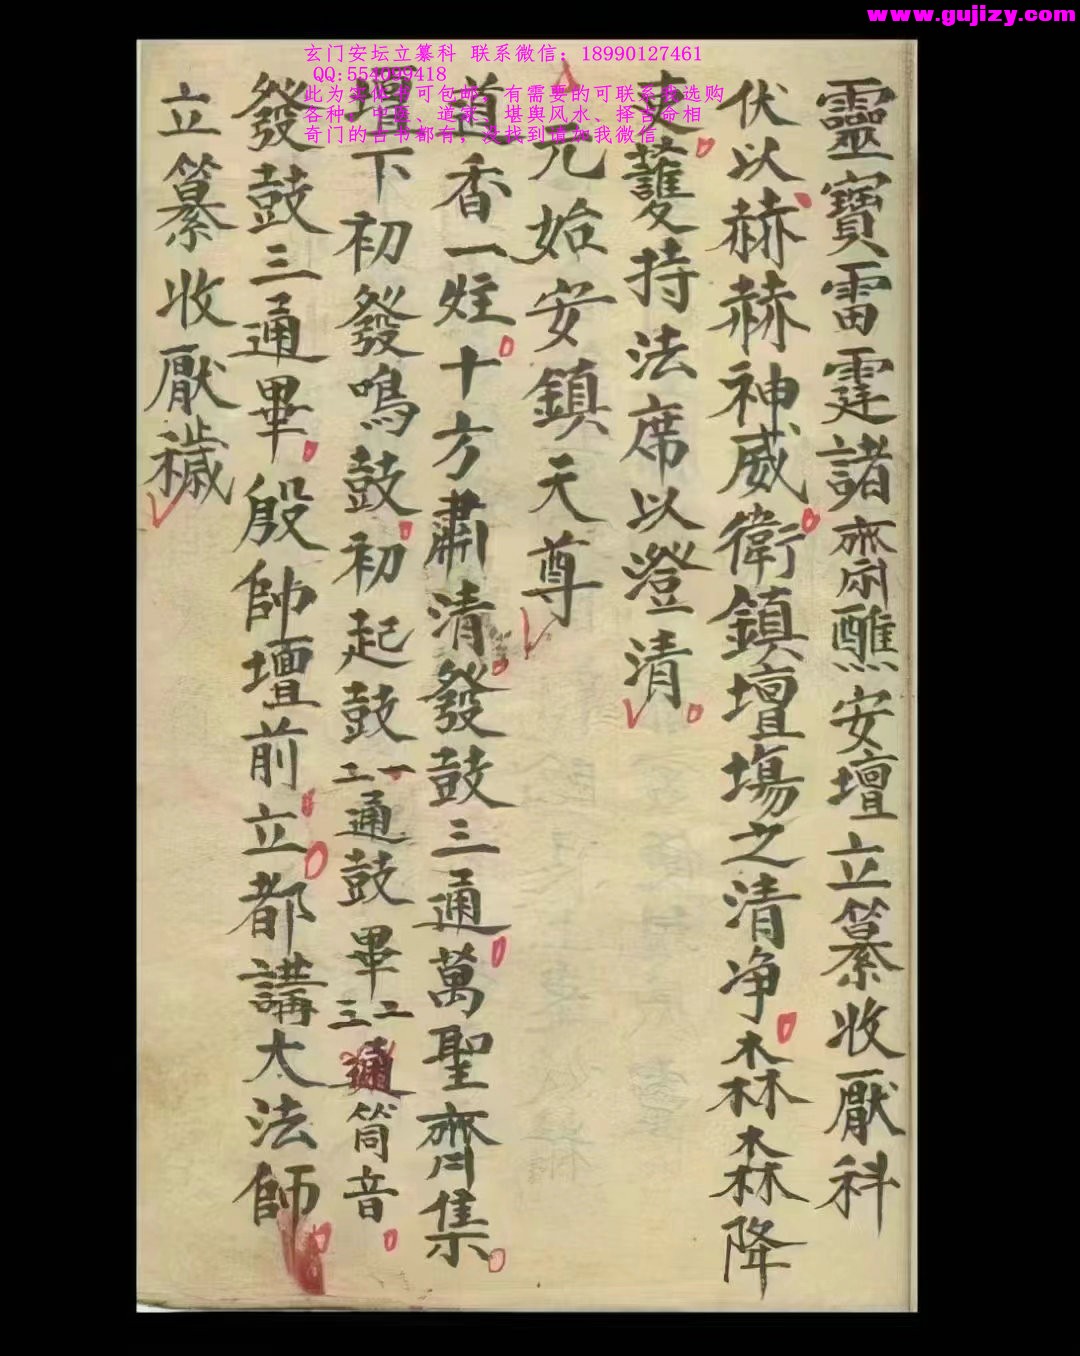 www.gujizy.com
玄门安坛立纂科 联系微信：18990127461
QQ:554099418
此为实体书可包邮，有需要的可联系我选购
各种，中医、道家、堪舆风水、择吉命相
奇门的古书都有，没找到请加我微信
靈寶雷霆諸齋醮安壇立纂收厭科
伏以赫赫神威衛鎮壇場之清净森森降
護持法席以澄清
元始安鎮天尊
道香一炷十方肅清發鼓三通萬聖齊集
壇下初發鳴鼓初起鼓一二通鼓畢二三通筒音
發鼓三通畢殷帥壇前立都講大法師
立纂收厭穢